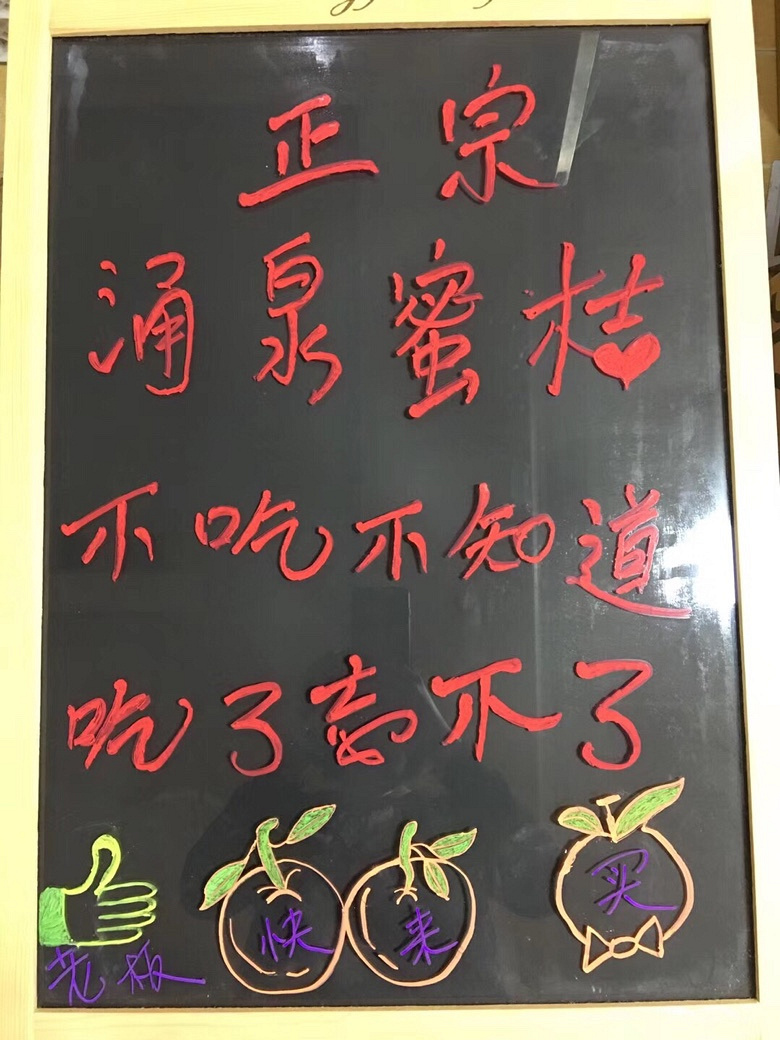 正宗
涌泉蜜桔
不吃不知道
吃了忘不了
老板 快来买